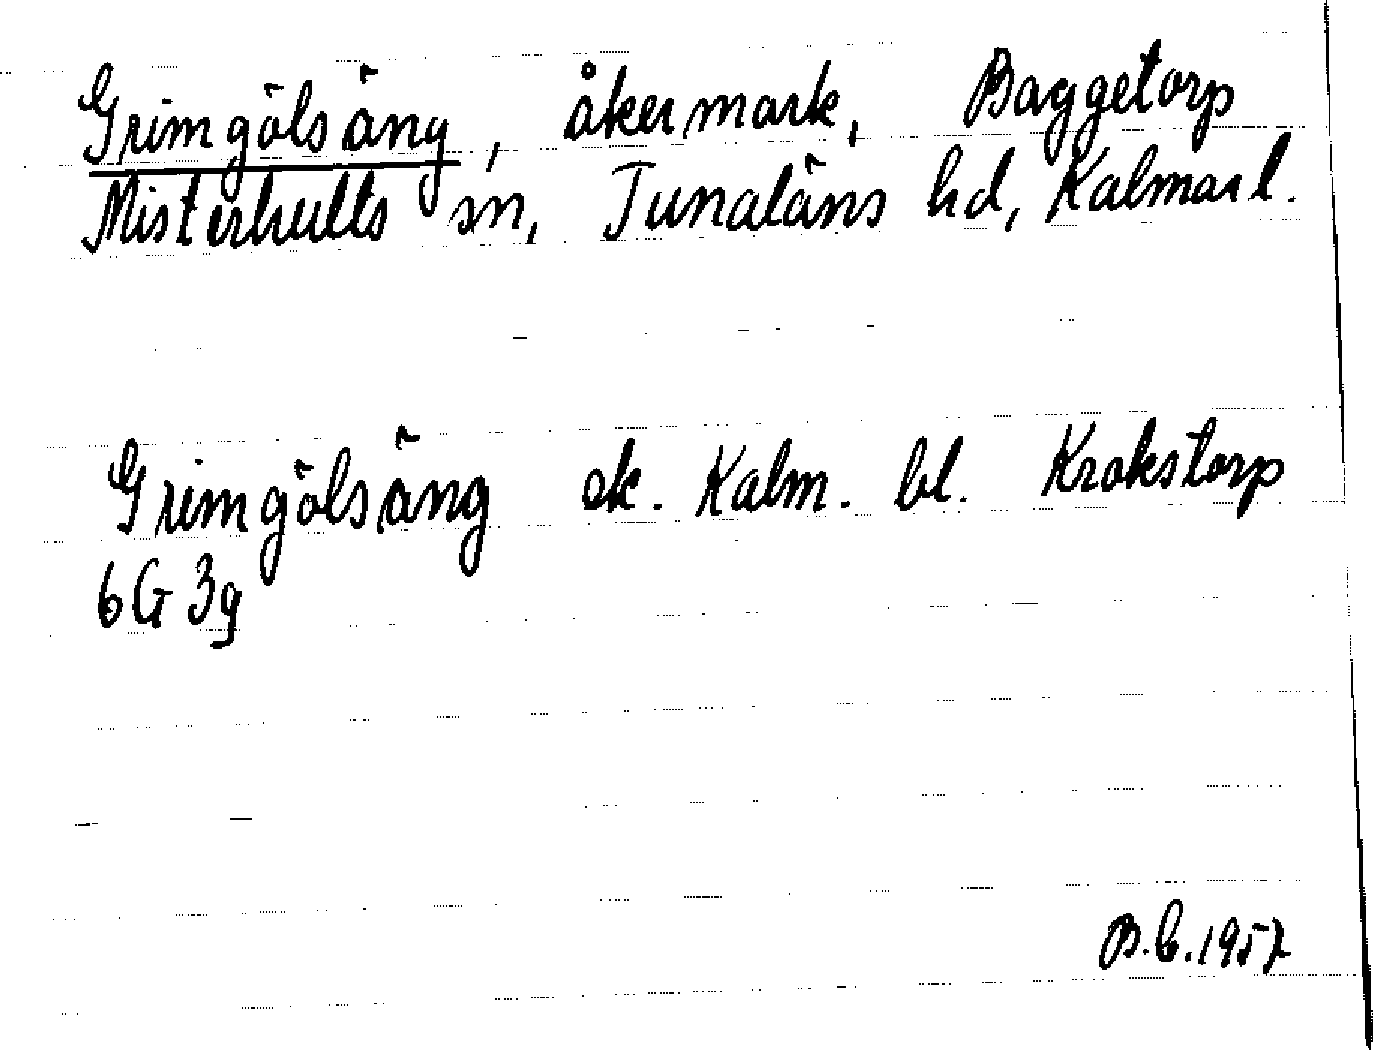 Grimgölsäng, åkermark, Baggetorp
Misterhults sn, Tunaläns hd, Kalmar l.
Grimgölsäng ek. Kalm. bl. Krokstorp
6G 3g
B.C. 1957